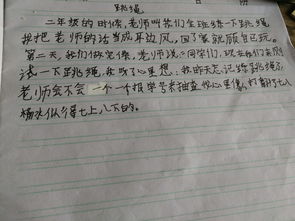 跳绳
二年级的时候,老师叫我们全班练一下跳绳
我把老师的话当成耳边风,回了家就顾自己玩。
第二天,我们做完操,老师说:同学们,现在我们去测
试一下跳绳,我听了心里想:我昨天忘记练跳绳了,
老师会不会一个一个报学号来抽查 我心里像打翻了七八
桶水似得七上八下的。